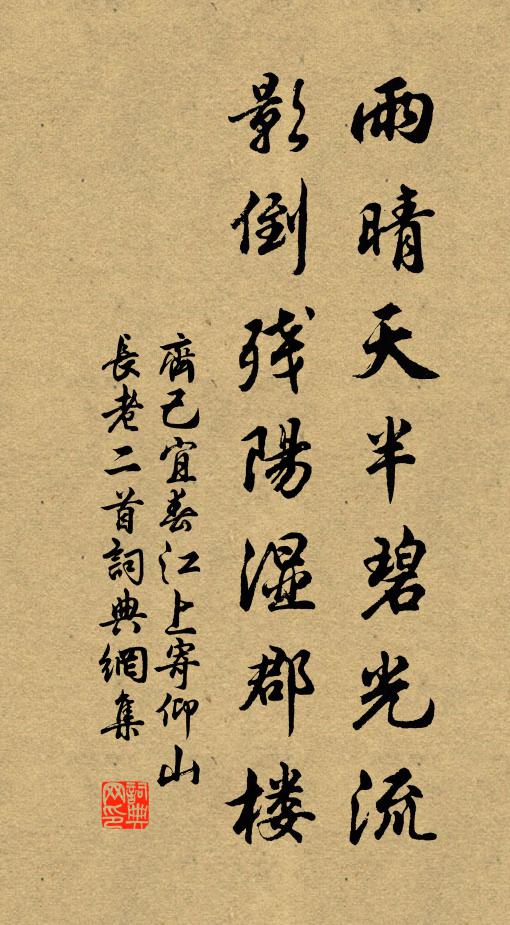 雨晴天半碧光流
影倒残陽湿郡楼
齊己宜春江上寄仰山
長老二首詞典網集
詞典网印